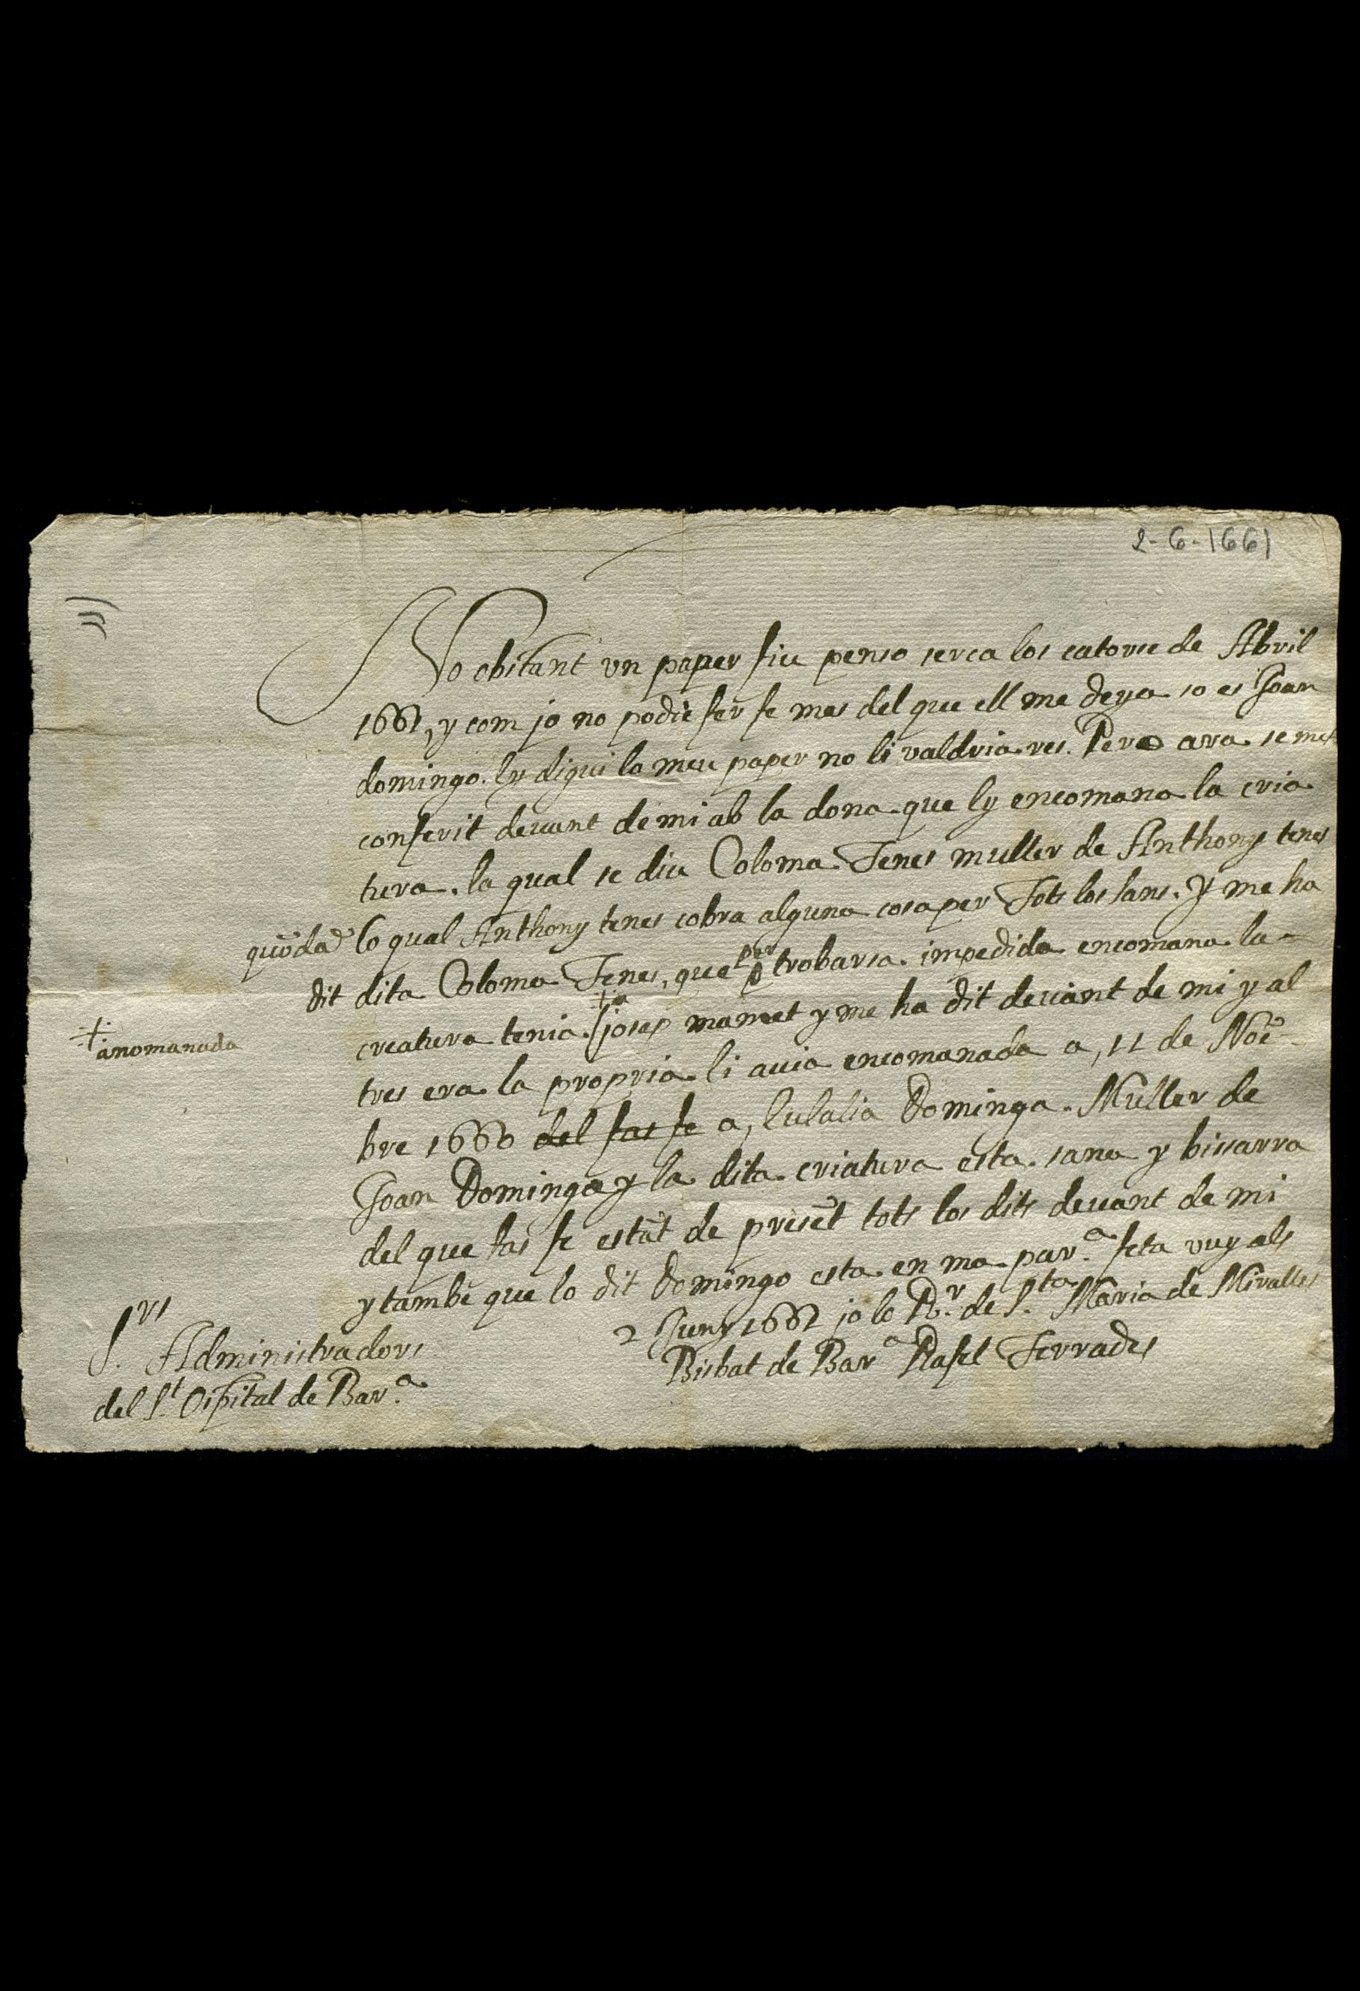 2-6-1661
No obstant un paper fiu penso serca los catorse de Abril
1661, y com jo no podie fer fe mes del que ell me deya so es Joan
domingo. ly digui lo meu paper no li valdria res. Pero ara se mes
conferit devant de mi ab la dona que ly encomana la cria
tura. la qual se diu Coloma Tenes muller de Anthony tenes
quõdã lo qual Anthony tenes cobra alguna cosa per Tots los sans. Y me ha
dit dita Coloma Tenes, que per trobarsa impedida encomana la
creatura tenia josep mamet y me ha dit devant de mi y al
+ anomanada
tres era la propria li avia encomanada a, 11 de Noẽ
bre 1660 del fas fe a, Eulalia Dominga. Muller de
Joan Dominga y la dita criatura esta sana y bissarra
del que fas fe estãt de presẽt tots los dits devant de mi
y tambe que lo dit Domingo esta en ma par.ª feta vuy als
2 Juny 1661 jo lo R.r de S.ta Maria de Miralles
Bisbat de Bar.ª Rafel Ferrades
S.rs Administradors
del S.t Ospital de Bar.ª